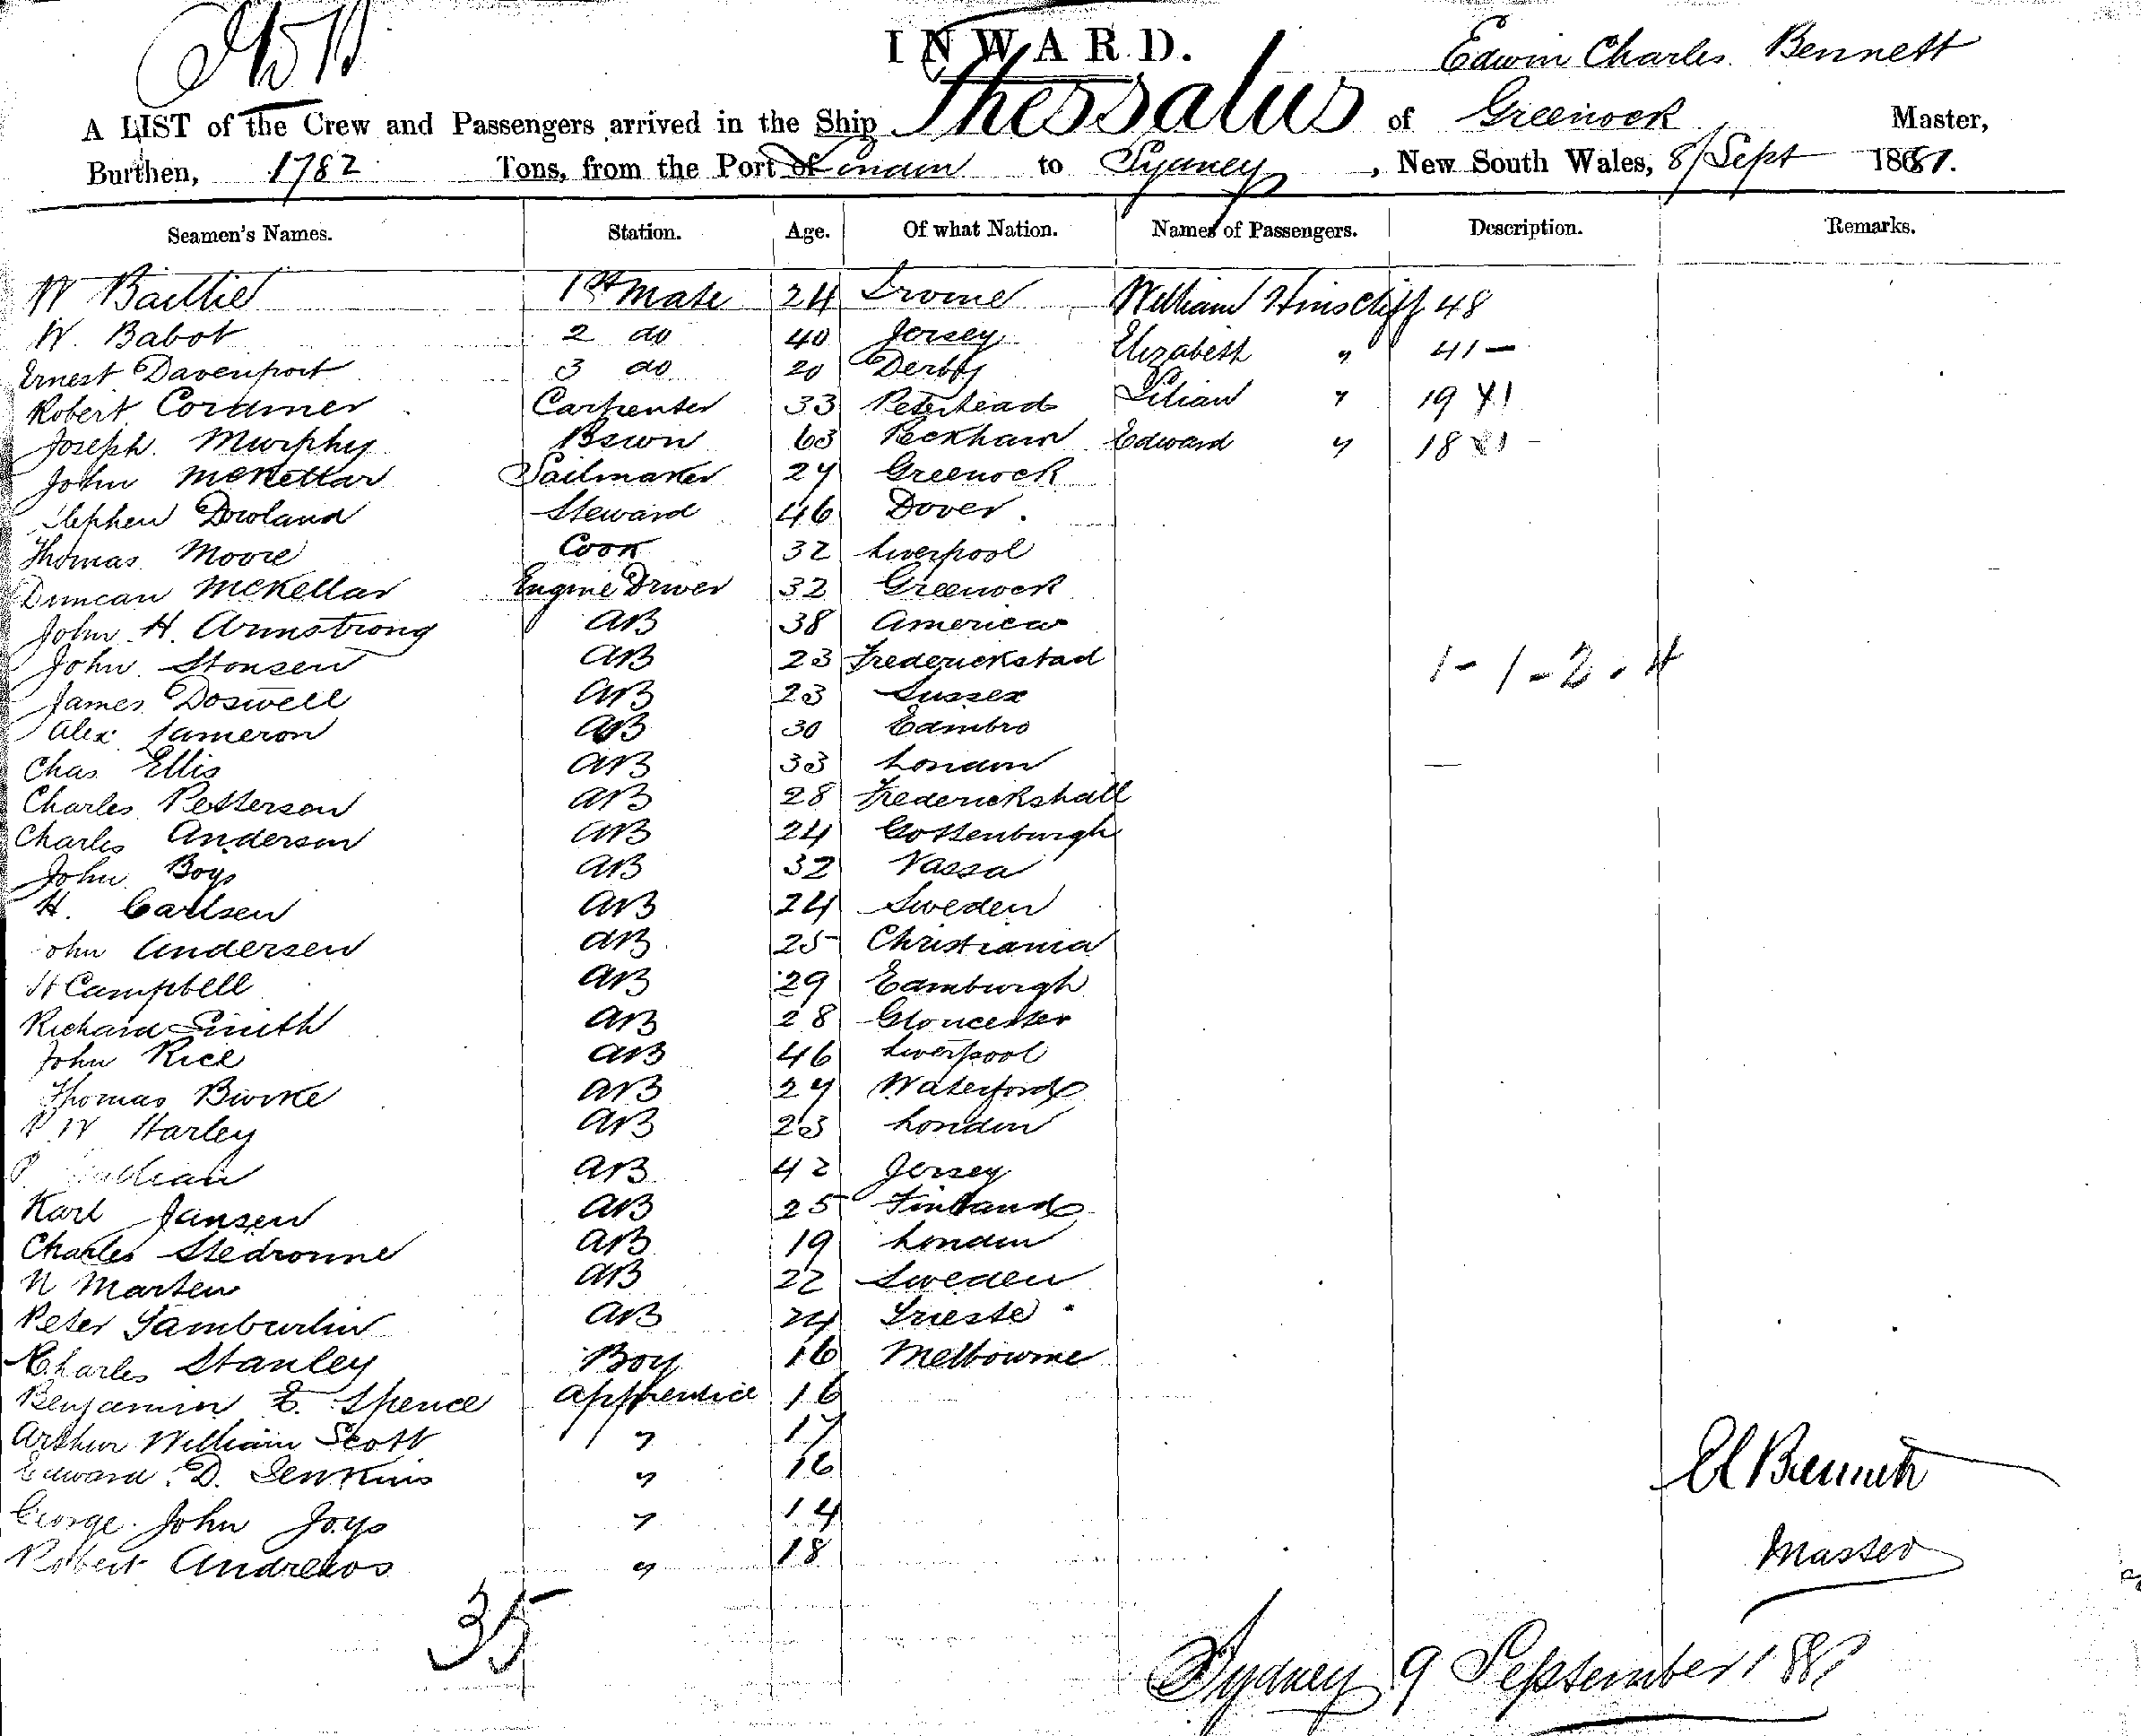 INWARD. Edwin Charles Bennett
A LIST of the Crew and Passengers arrived in the Ship Thessalus of Greenock Master,
Burthen, 1782 Tons, from the Port of London to Sydney, New South Wales, 8/Sept 1881.
Seamen's Names. Station. Age. Of what Nation. Names of Passengers. Description. Remarks.
W Baillie 1st Mate 24 Irvine William Hinscliff 48
W. Babot 2 do 40 Jersey Elizabeth " 41 —
Ernest Davenport 3 do 20 Derby
Robert Cordiner Carpenter 33 Peterhead Lilian " 19
Joseph Murphy Bswn 63 Peckham Edward " 18
John McKellar Sailmaker 27 Greenock
Stephen Dowland Steward 46 Dover.
Thomas Moore Cook 32 Liverpool
Duncan McKellar Engine Driver 32 Greenock
John H. Armstrong AB 38 America
John Stonsen AB 23 Frederickstad 1-1-2.4
James Doswell AB 23 Sussex
Alex Cameron AB 30 Edinbro
Chas Ellis AB 33 London
Charles Petterson AB 28 Frederickshall
Charles Anderson AB 24 Gottenburgh
John Boys AB 32 Vassa
H. Carlsen AB 24 Sweden
John Andersen AB 25 Christiania
H Campbell AB 29 Edinburgh
Richard Smith AB 28 Gloucester
John Rice AB 46 Liverpool
Thomas Burke AB 27 Waterford
W Harley AB 23 London
P. AB 42 Jersey
Karl Jansen AB 25 Finland
Charles Stedronne AB 19 London
N Marten AB 22 Sweden
Peter Tamburlin AB 24 Trieste
Charles Stanley Boy 16 Melbourne
Benjamin E. Spence Apprentice 16
Arthur William Scott " 17
Edward D. Jenkins " 16
George John Joys " 14
Robert Andrews " 18
35
EC Bennett
Master
Sydney 9 September 1881